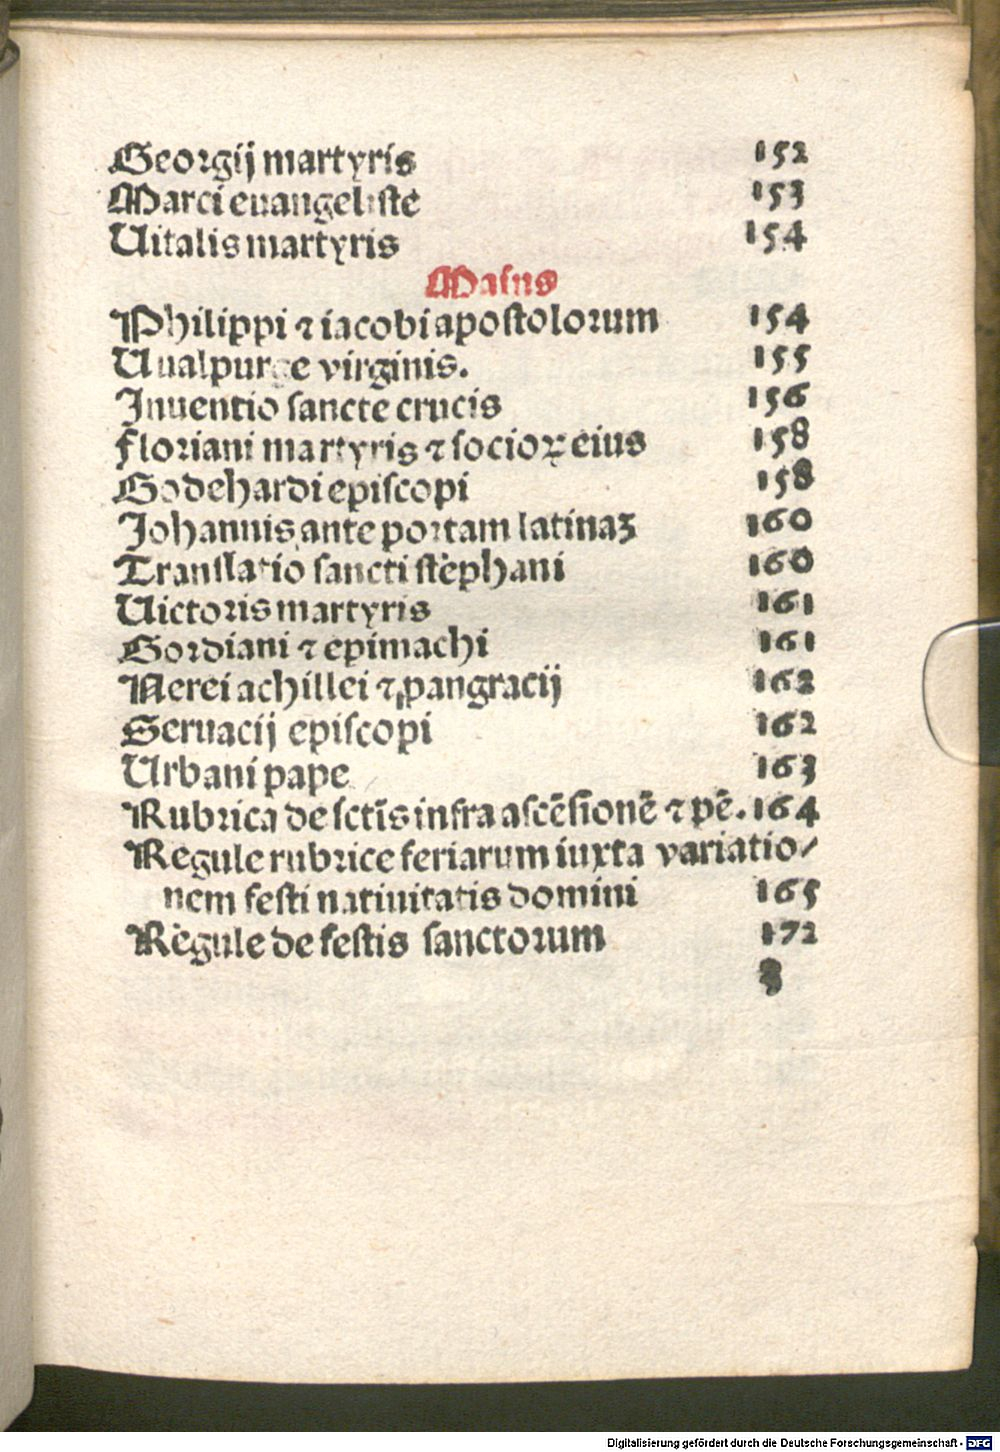 Georgij martyris 152
Marci euangeliste 153
Uitalis martyris 154
Maius
Philippi ⁊ iacobi apostolorum 154
Uualpurge virginis. 155
Inuentio sancte crucis 156
Floriani martyris ⁊ socioꝝ eius 158
Godehardi episcopi 158
Johannis ante portam latinaꝫ 160
Translatio sancti stephani 160
Uictoris martyris 161
Gordiani ⁊ epimachi 161
Nerei achillei ⁊ pangracij 162
Seruacij episcopi 162
Urbani pape 163
Rubrica de sctīs infra ascēsionē ⁊ pē. 164
Regule rubrice feriarum iuxta variatio/
nem festi natiuitatis domini 165
Regule de festis sanctorum 172
3
Digitalisierung gefördert durch die Deutsche Forschungsgemeinschaft - DFG